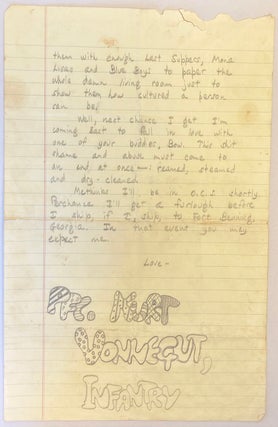 them with enough Last Suppers, Mona
Lisas and Blue Boys to paper the
whole damn living room just to
show them how cultured a person
can be.
Well, next chance I get I'm
coming East to fall in love with
one of your buddies, Bow. This shit
shame and abuse must come to
an end at once — reamed, steamed
and dry-cleaned.
Methinks I'll be in O.C.S. shortly.
Perchance I'll get a furlough before
I ship, if I ship, to Fort Benning,
Georgia. In that event you may
expect me.
Love-
VONNEGUT,
INFANTRY